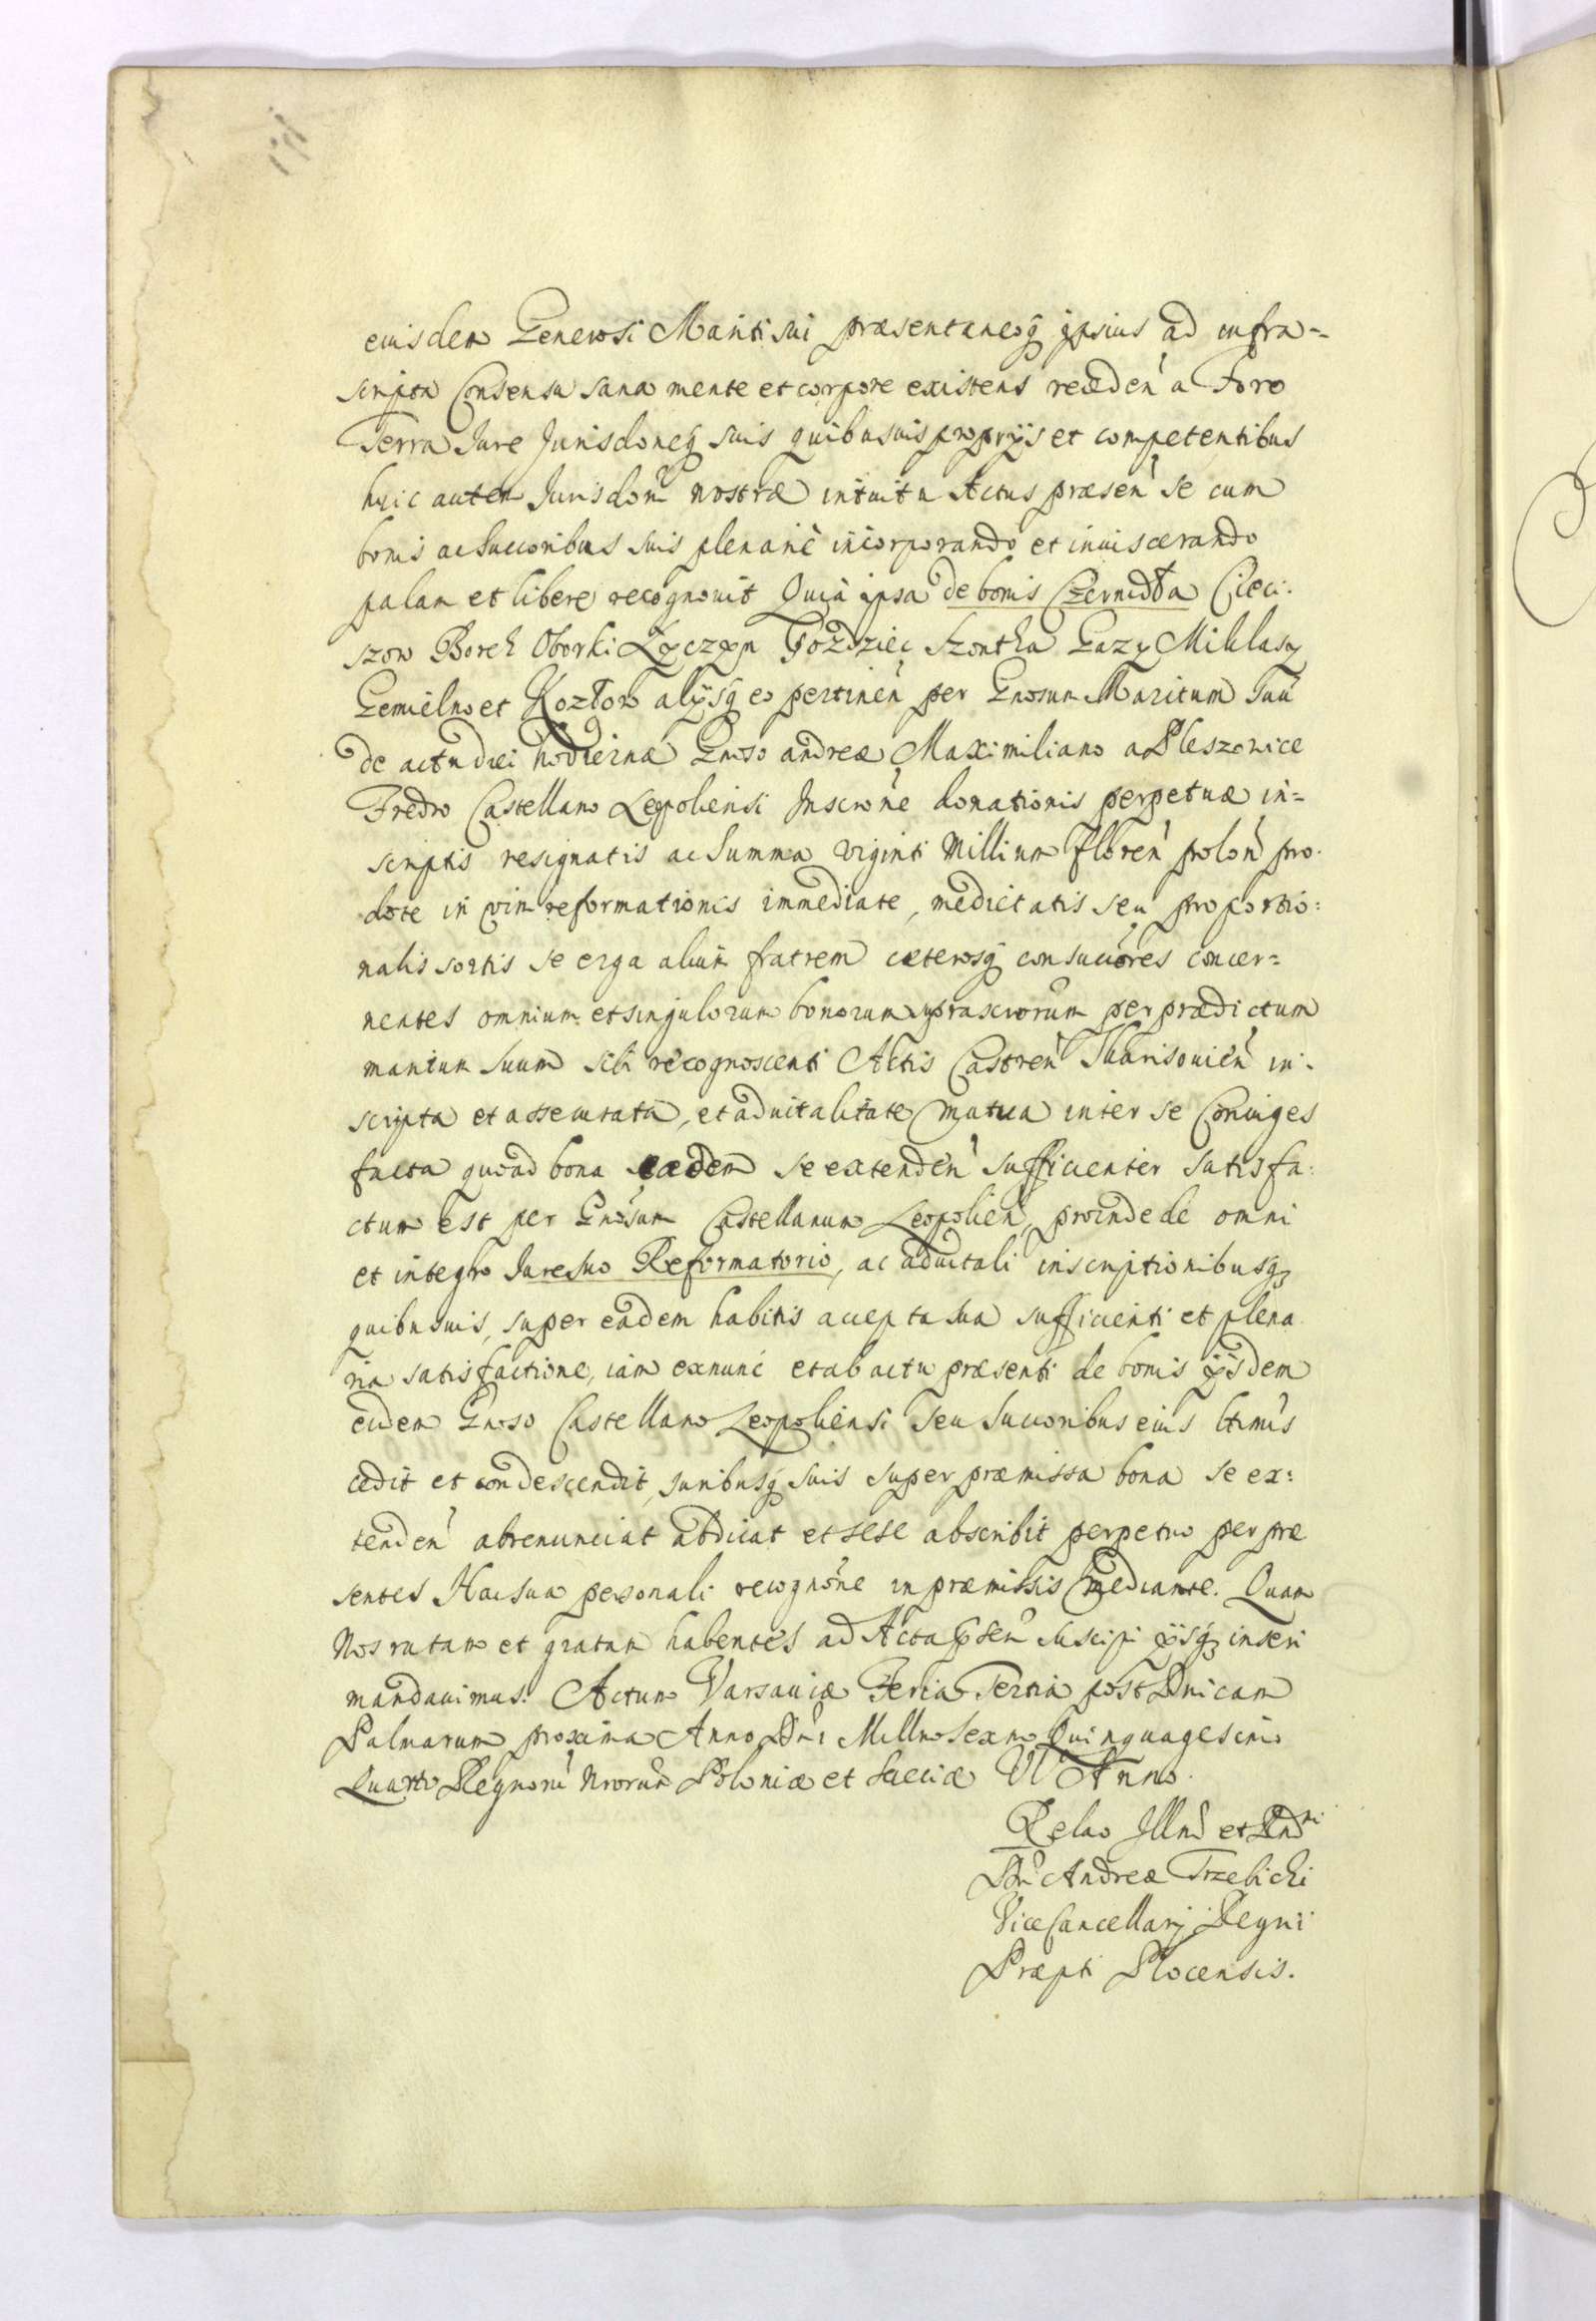 eiusdem Generosi Mariti sui præsentaneoq̃ ipsius ad infra=
scripta Consensu sana mente et corpore existens recedeń a Foro
Terra Jure Jurisdoneq̃ suis quibusuis proprÿs et competentibus
huic autem Jurisdoni nostræ intuitu Actus præseń se cum
bonis ac Succoribus suis plenarie incorporando et inuiscerando
palam et libere recognouit Quia ipsa de bonis Czernidła Cieci:
szow Borek Oborki Gozdziec Szontka Gazy Miklasy
Gemielno et Kozłow alÿsq̃ eo pertineń per Gnosum Maritum Suũ
de actu diei hodierna Gnoso andreæ Maximiliano a Pleszowice
Fredro Castellano Leopoliensi Inscrone donationis perpetuæ in=
scriptis resignatis ac Summa viginti Millium floreń poloń pro
dote in vim reformationis immediate, medietatis seu proportio:
nalis sortis se erga alium fratrem cæterosq̃ consuccores concer=
nentes omnium et singulorum bonorum suprascrorum per prædictum
maritum Suum sibi recognoscenti Actis Castreń Tharisouień in:
scripta et assecurata, et aduitalitate mutua inter se Coniuges
facta quoad bona eædem se extendeń sufficienter satisfa:
ctum est per Gnosum Castellanum Leopolień, proinde de omni
et integro Jure suo Reformatorio, ac aduitali inscriptionibusq̃
quibusuis, super eadem habitis accepta sua sufficienti et plena
ria satisfactione, iam exnunc et ab actu præsenti de bonis ÿsdem
eidem Gnoso Castellano Leopoliensi seu Succoribus eius ltimis
cedit et condescendit, Juribusq̃ suis super præmissa bona se ex:
tendeń abrenunciat abdicat et sese abscribit perpetuo per præ
sentes Hac sua personali recognone in præmissis mediante. Quam
Nos ratam et gratam habentes ad Acta pseń suscipi ÿsq̃ inseri
mandauimus. Actum Varsauiæ Feria Tertia post Dnicam
Palmarum proxima Anno Dni Millmo Sexmo Quinquagesimo
Quarto Regnorũ Nrorum Poloniæ et Sueciæ VI Anno.
Relao Illris et Rndmi
Dni Andreæ Trzebicki
ViceCancellarÿ Regni
Præpti Plocensis.